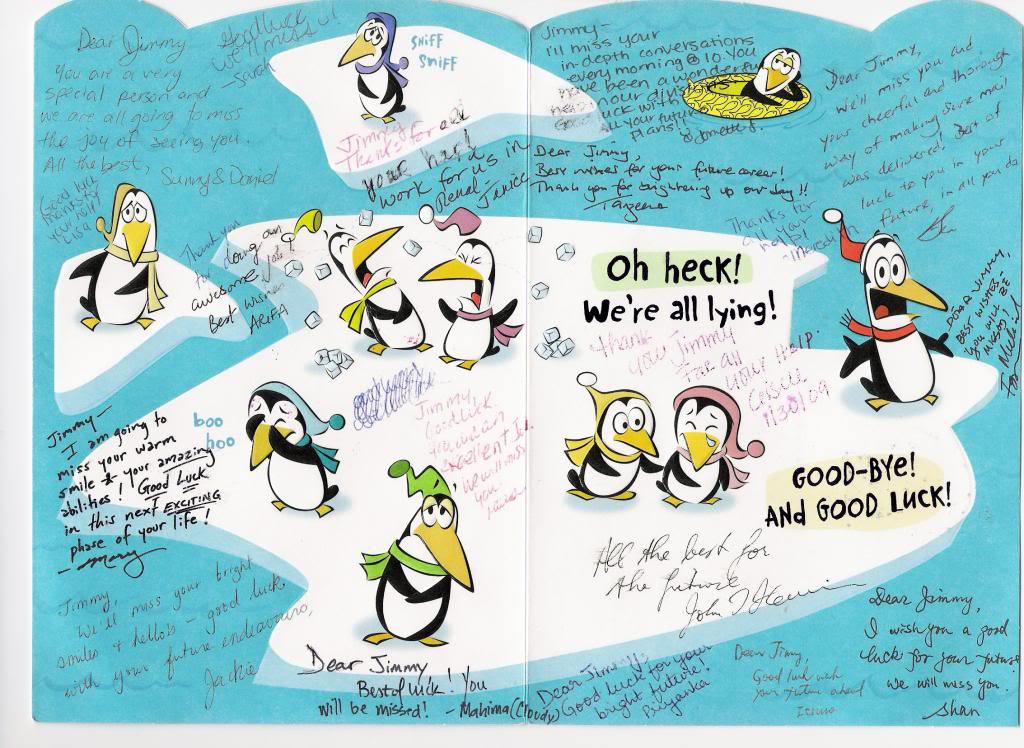 Dear Jimmy
You are a very
special person and
we are all going to miss
the joy of seeing you.
All the best,
Sunny & Daniel
Good luck
we'll miss u!
- Sarah
SNIFF
SNIFF
Jimmy
Thanks for all
your hard
work for us
in Renal - Janice
Jimmy -
I'll miss your
in-depth conversations
every morning @ 10. You
have been a wonderful
Good luck with
ALL your future
plans!
Dear Jimmy,
Best wishes for your future career!
Thank you for brightening up our day!!
Dear Jimmy,
We'll miss you and
your cheerful and thorough
way of making sure mail
was delivered! Best of
luck to you in your
future, in all you do
Good luck
thanks for
Lisa
Thank you
for doing our
awesome job!
Best wishes
ARIFA
Thanks for
all
Oh heck!
We're all lying!
Thank
you Jimmy
for all
your Help
1/30/09
DEAR JIMMY,
BEST WISHES.
YOU WILL BE
MISSED!
boo
hoo
Jimmy,
Good Luck
you
excellent
we will miss
you
Jimmy -
I am going to
miss your warm
smile & your amazing
abilities! Good Luck
in this next EXCITING
phase of your life!
- Mary
GOOD-BYE!
AND GOOD LUCK!
All the best for
the future
John
Jimmy,
We'll miss your bright
smiles & hello's - good luck
with your future endeavours,
Jackie
Dear Jimmy
Best of luck! You
will be missed! - Mahima (Cloudy)
Dear Jimmy,
Good luck for your
bright future!
Priyanka
Dear Jimmy
Good luck with
your future ahead
Dear Jimmy,
I wish you a good
luck for your future
we will miss you.
Shan